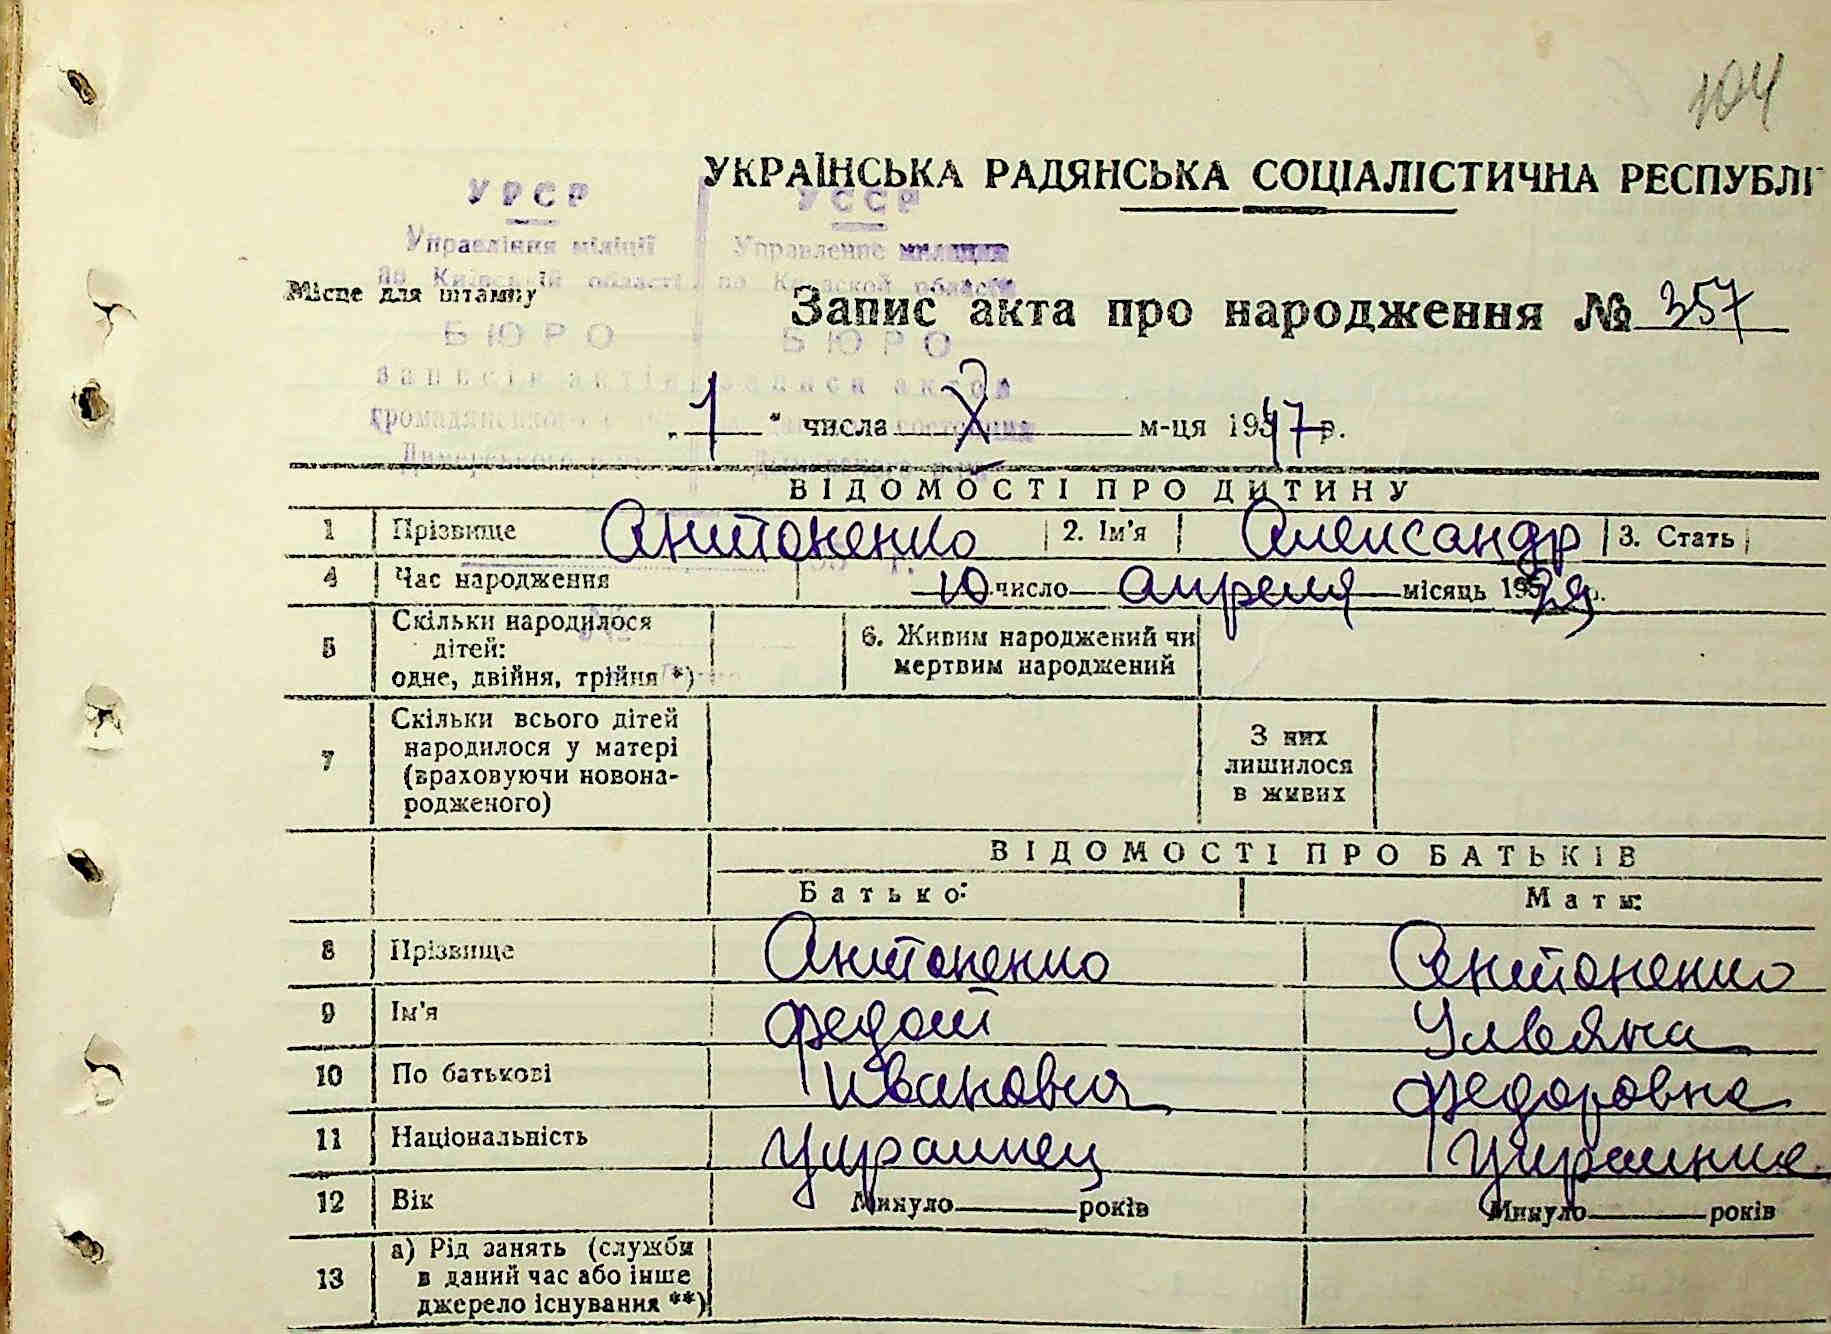 104
УКРАЇНСЬКА РАДЯНСЬКА СОЦІАЛІСТИЧНА РЕСПУБЛІ
УРСР УССР
Управління міліції Управление милиции
по Київській області по Киевской области
Місце для штампу
Запис акта про народження № 357
БЮРО БЮРО
записів актів записи актов
громадянського состояния
Димерського
„ 1 " числа X м-ця 1947 р.
ВІДОМОСТІ ПРО ДИТИНУ
1 Прізвище Антоненко 2. Ім'я Александр 3. Стать
4 Час народження 10 число апреля місяць 1929 р.
5 Скільки народилося дітей: одне, двійня, трійня *) 6. Живим народжений чи мертвим народжений
7 Скільки всього дітей народилося у матері (враховуючи новонародженого) З них лишилося в живих
ВІДОМОСТІ ПРО БАТЬКІВ
Батько: Мати:
8 Прізвище Антоненко Антоненко
9 Ім'я Федот Ульяна
10 По батькові Иванович Федоровна
11 Національність украинец украинка
12 Вік Минуло років Минуло років
13 а) Рід занять (служби в даний час або інше джерело існування **)